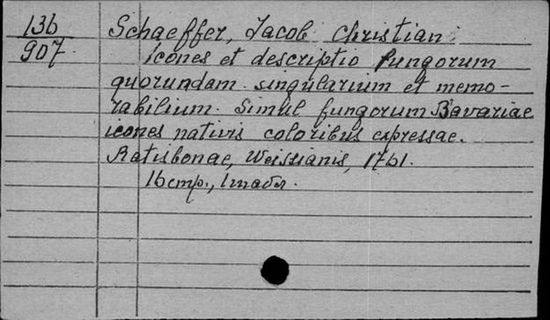 136
907.
Schaeffer, Jacob Christian.
Icones et descriptio fungorum
quorundam singularium et memo-
rabilium. Simul fungorum Bavariae
icones nativis coloribus expressae.
Ratisbonae, Weissianis, 1761.
16 стр., 1 табл.